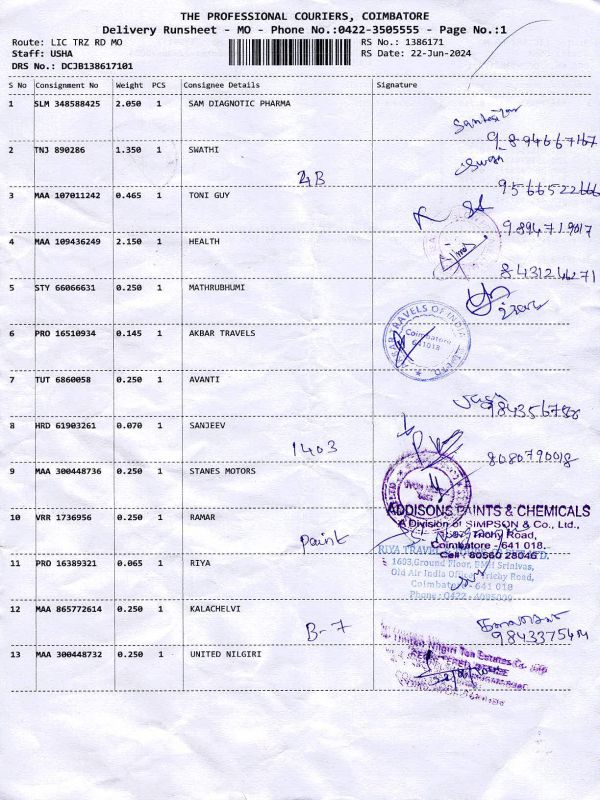 THE PROFESSIONAL COURIERS, COIMBATORE
Delivery Runsheet - MO - Phone No.:0422-3505555 - Page No.:1
Route: LIC TRZ RD MO RS No.: 1386171
Staff: USHA RS Date: 22-Jun-2024
DRS No.: DCJB138617101
S No Consignment No Weight PCS Consignee Details Signature
1 SLM 348588425 2.050 1 SAM DIAGNOTIC PHARMA
2 TNJ 890286 1.350 1 SWATHI
9566522666
3 MAA 107011242 0.465 1 TONI GUY
4 MAA 109436249 2.150 1 HEALTH
5 STY 66066631 0.250 1 MATHRUBHUMI
6 PRO 16510934 0.145 1 AKBAR TRAVELS
AKBAR TRAVELS OF INDIA
Coimbatore
641018
7 TUT 6860058 0.250 1 AVANTI
8 HRD 61903261 0.070 1 SANJEEV
1403
8080790018
9 MAA 300448736 0.250 1 STANES MOTORS
ADDISONS PAINTS & CHEMICALS
A Division of SIMPSON & Co., Ltd.,
10 VRR 1736956 0.250 1 RAMAR
Trichy Road,
Paint
Coimbatore - 641 018.
Cell: 80560 28046
RIYA TRAVEL
11 PRO 16389321 0.065 1 RIYA
1603,Ground Floor, EMH Srinivas,
Old Air India Office, Trichy Road,
Coimbatore - 641 018
12 MAA 865772614 0.250 1 KALACHELVI
B-7
13 MAA 300448732 0.250 1 UNITED NILGIRI
United Nilgiri Tea Estates Co.